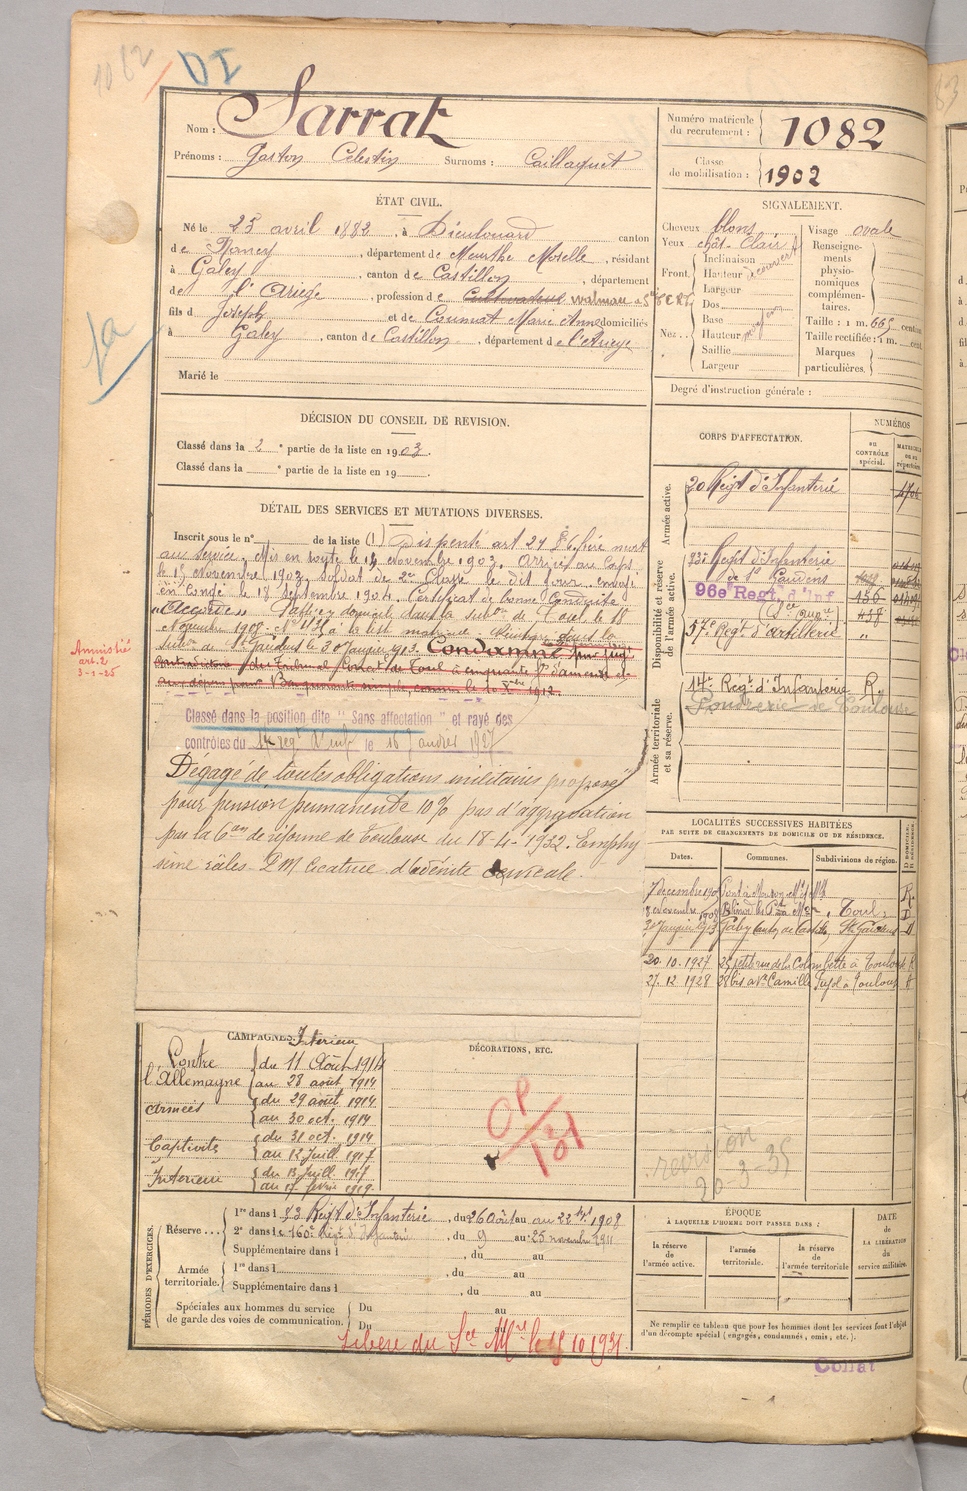 1082
DI
Nom : Sarrat
Prénoms : Gaston Célestin Surnoms : Caillaquet
Numéro matricule du recrutement : 1082
Classe de mobilisation : 1902
ÉTAT CIVIL.
Né le 25 avril 1882, à Dieulouard canton
de Nancy, département de Meurthe Moselle, résidant
à Galey, canton de Castillon, département
de l'Ariège, profession de Cultivateur
fils de Joseph et de Coumat Marie Anne domiciliés
à Galey, canton de Castillon, département de l'Ariege
Marié le
SIGNALEMENT.
Cheveux blons
Yeux chât. Clair
Front. Inclinaison
Hauteur découvert
Largeur
Nez Dos
Base
Hauteur moyen
Saillie
Largeur
Visage ovale
Renseignements physionomiques complémentaires.
Taille : 1 m. 665 cent
Taille rectifiée : 1 m. cent
Marques particulières.
Degré d'instruction générale :
DÉCISION DU CONSEIL DE REVISION.
Classé dans la 2e partie de la liste en 1903.
Classé dans la e partie de la liste en 19
DÉTAIL DES SERVICES ET MUTATIONS DIVERSES.
Inscrit sous le n° de la liste (1) Dispensé art 21 frère mort
au service. Mis en route le 14 novembre 1903. Arrivé au corps
le 15 novembre 1903, soldat de 2e Classe le dit jour. envoyé
en congé le 18 septembre 1904. Certificat de bonne Conduite
"Accordé" Passé domicile dans la subon de Toul le 18
Novembre 1908. à la liste matricule. Réintégré dans la
subon de St Gaudens le 30 Janvier 1913. Condamné par jugt
contradictoire du Tribunal Correct de Toul à cinquante frs d'amende et
aux dépens pour le 10 Xbre 1912
Amnistié
art. 2
3-1-25
Classé dans la position dite "Sans affectation" et rayé des
contrôles du 14 regt d'inf le 16 Janvier 1927
Dégagé de toutes obligations militaires proposé
pour pension permanente 10% pas d'aggravation
par la 6e de réforme de Toulouse du 18-4-1932. Emphy
sème râles P M Cicatrice d'adénite cervicale.
CORPS D'AFFECTATION.
NUMÉROS
AU CONTRÔLE spécial.
MATRICULE OU AU répertoire
Armée active.
20 Regt d'Infanterie
Disponibilité et réserve de l'armée active.
83e Regt d'Infanterie
de St Gaudens
96e Regt. d'Inf 150
57e Regt d'artillerie
Armée territoriale et sa réserve.
14e Regt d'Infanterie R
Poudrerie de Toulouse
LOCALITÉS SUCCESSIVES HABITÉES
PAR SUITE DE CHANGEMENTS DE DOMICILE OU DE RÉSIDENCE.
Dates. Communes. Subdivisions de région. D DOMICILE. R RÉSIDENCE.
Pont à Mousson R
Toul D
30 Janvier 1913 Galey Canton de Castillon St Gaudens D
20.10.1927 25 petite rue de la Colombette à Toulouse R
27.12 1928 28 bis ave Camille Pujol à Toulouse
CAMPAGNES.
Contre l'Allemagne
Intérieur
du 11 Août 1914
au 28 août 1914
Armées
du 29 août 1914
au 30 oct. 1914
Captivité
du 31 oct. 1914
au 12 Juill 1917
Intérieur
du 13 Juill. 1917
au 17 fevrier 1919
DÉCORATIONS, ETC.
revision
20-3-35
PÉRIODES D'EXERCICES.
Réserve
1re dans l 83 Regt d'Infanterie, du 26 Août au 22 1908
2e dans l e 160e Regt d'Infanterie, du 9 au 25 novembre 1911
Supplémentaire dans l , du au
Armée territoriale.
1re dans l , du au
Supplémentaire dans l , du au
Spéciales aux hommes du service de garde des voies de communication.
Du au
Du au
Libéré du Sce Mre le 15 10 1931
ÉPOQUE
À LAQUELLE L'HOMME DOIT PASSER DANS :
la réserve de l'armée active.
l'armée territoriale.
la réserve de l'armée territoriale
DATE de LA LIBÉRATION du service militaire.
Ne remplir ce tableau que pour les hommes dont les services font l'objet
d'un décompte spécial (engagés, condamnés, omis, etc.).